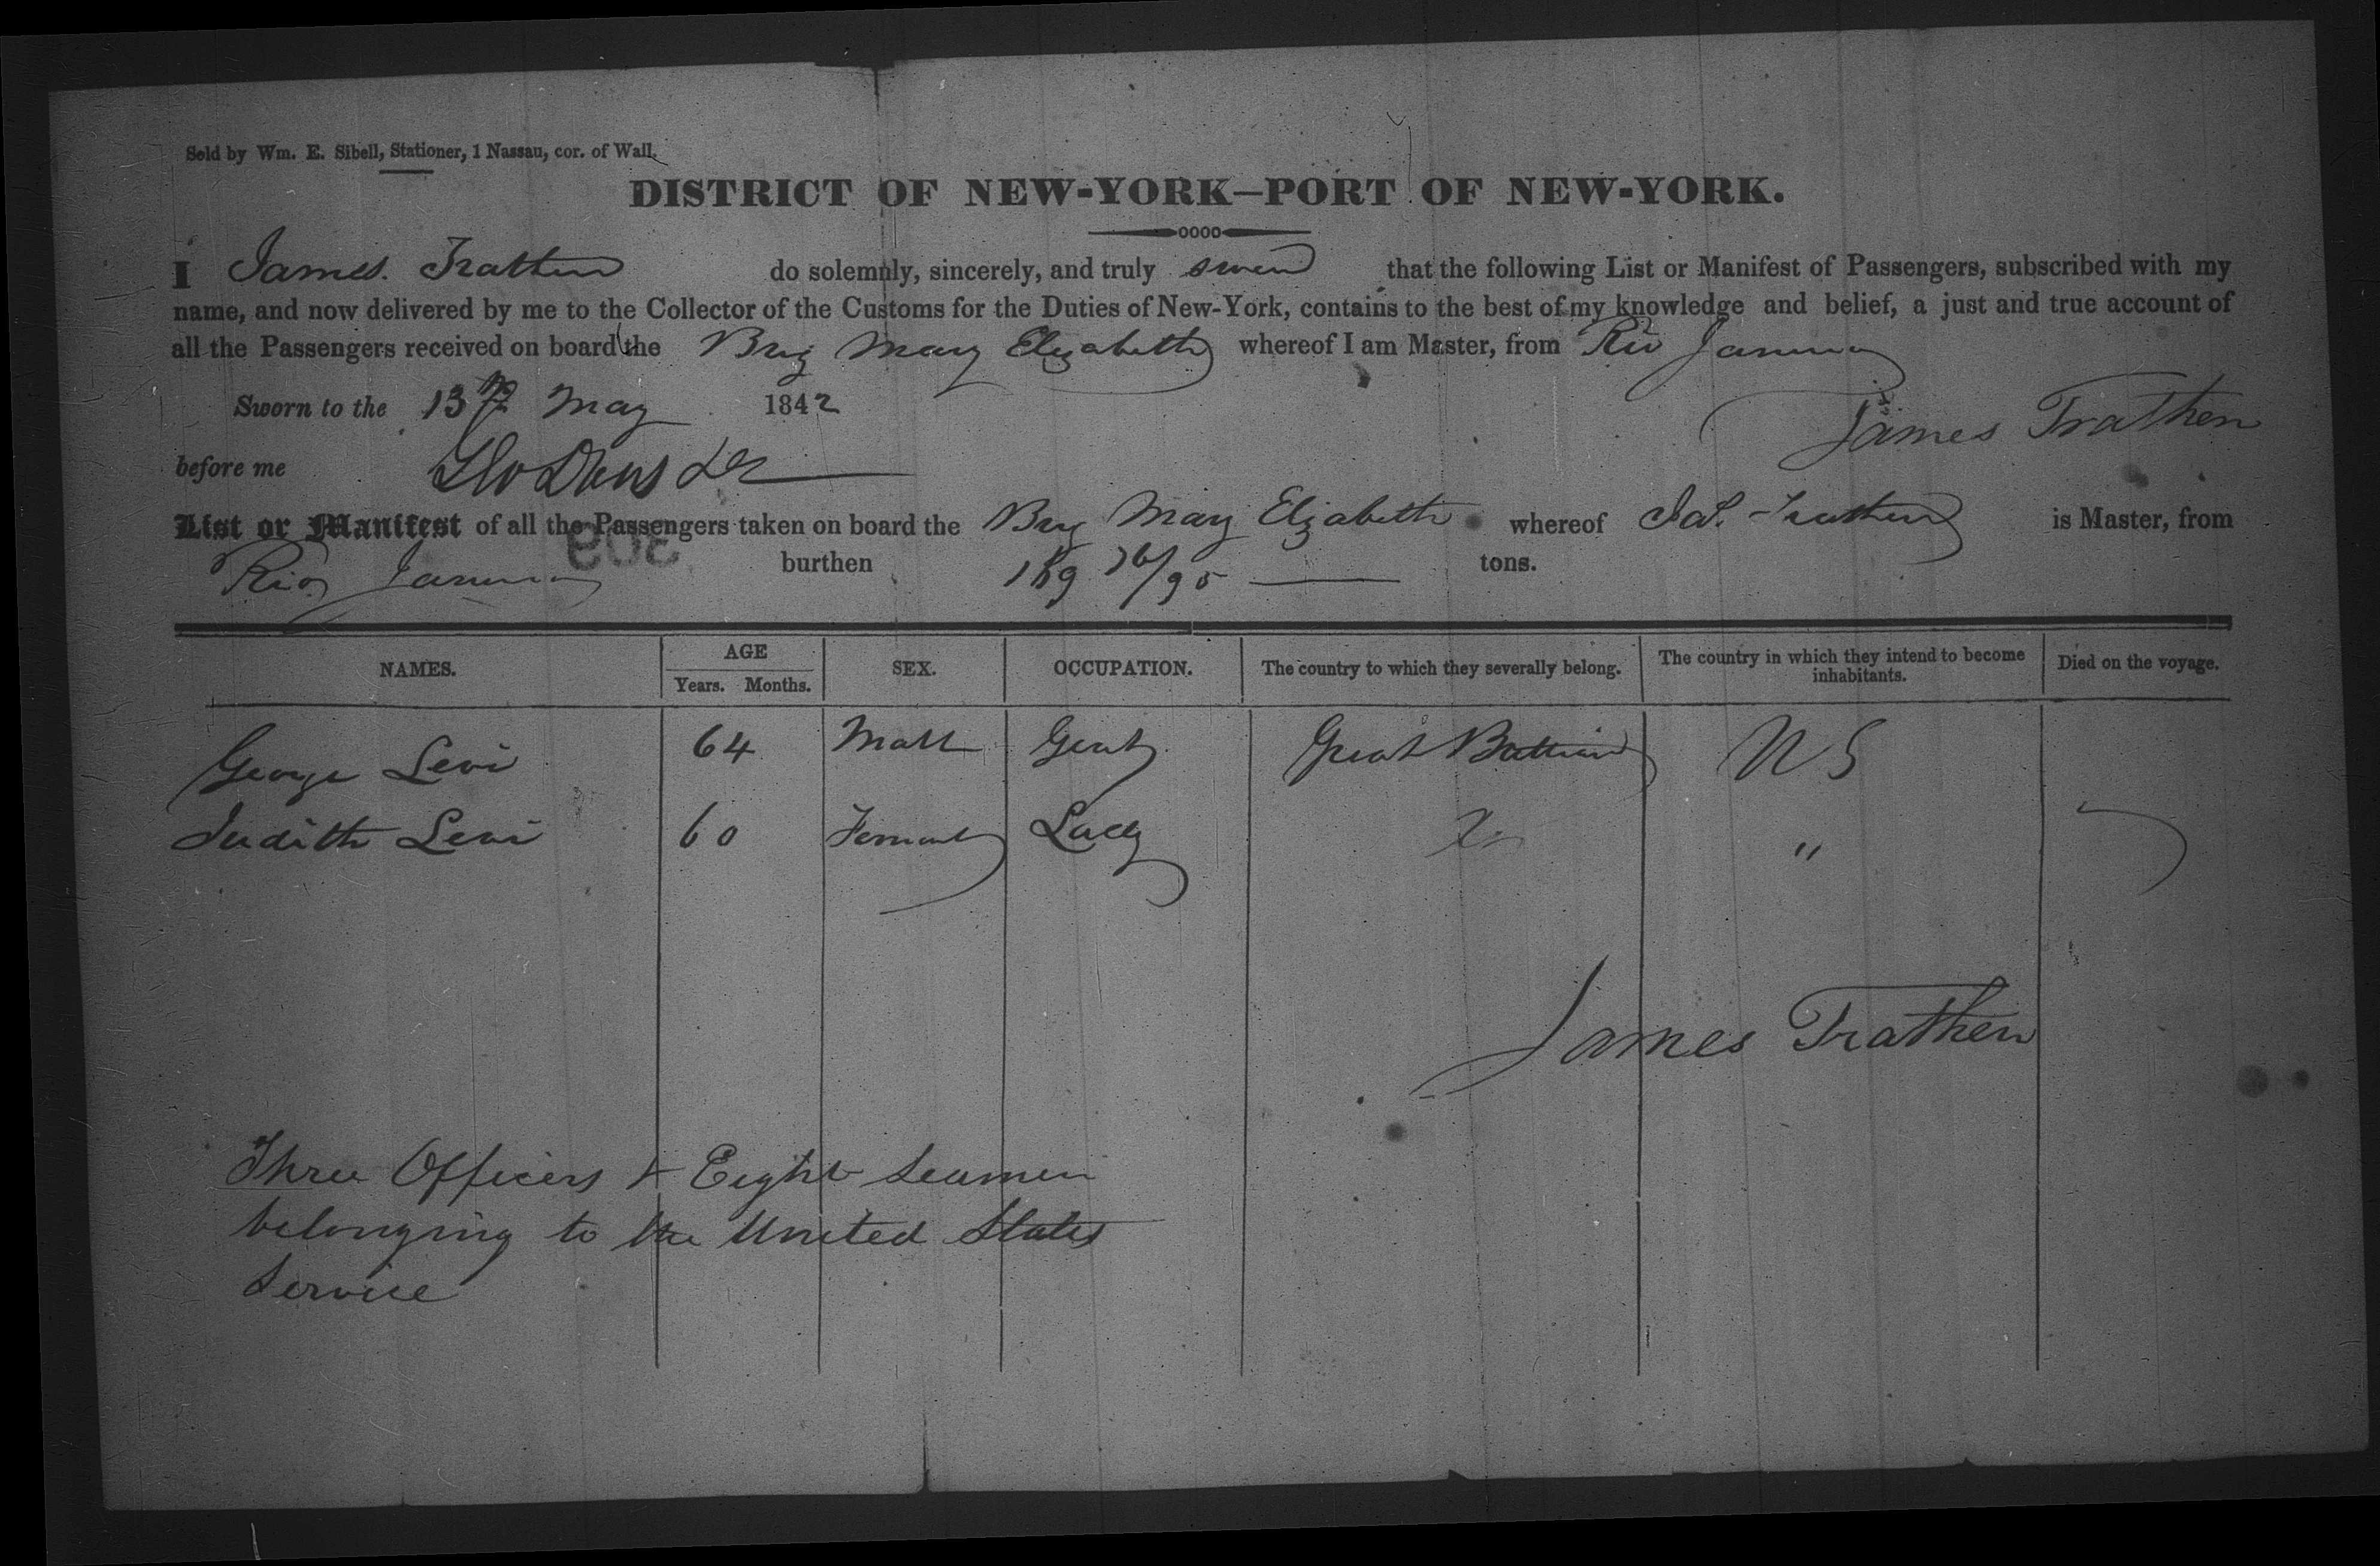 Sold by Wm. E. Sibell, Stationer, 1 Nassau, cor. of Wall.
DISTRICT OF NEW-YORK—PORT OF NEW-YORK.
I James Trathen do solemnly, sincerely, and truly swear that the following List or Manifest of Passengers, subscribed with my
name, and now delivered by me to the Collector of the Customs for the Duties of New-York, contains to the best of my knowledge and belief, a just and true account of
all the Passengers received on board the Brig Mary Elizabeth whereof I am Master, from Rio Janeiro
Sworn to the 13th May 1842
James Trathen
before me
List or Manifest of all the Passengers taken on board the Brig Mary Elizabeth whereof Jas. Trathen is Master, from
Rio Janeiro burthen 189 76/95 tons.
NAMES. AGE Years. Months. SEX. OCCUPATION. The country to which they severally belong. The country in which they intend to become inhabitants. Died on the voyage.
George Levi 64 Male Gent Great Brittian U S
Judith Levi 60 Female Lady "
James Trathen
Three Officers & Eight Seamen
belonging to the United States
Service